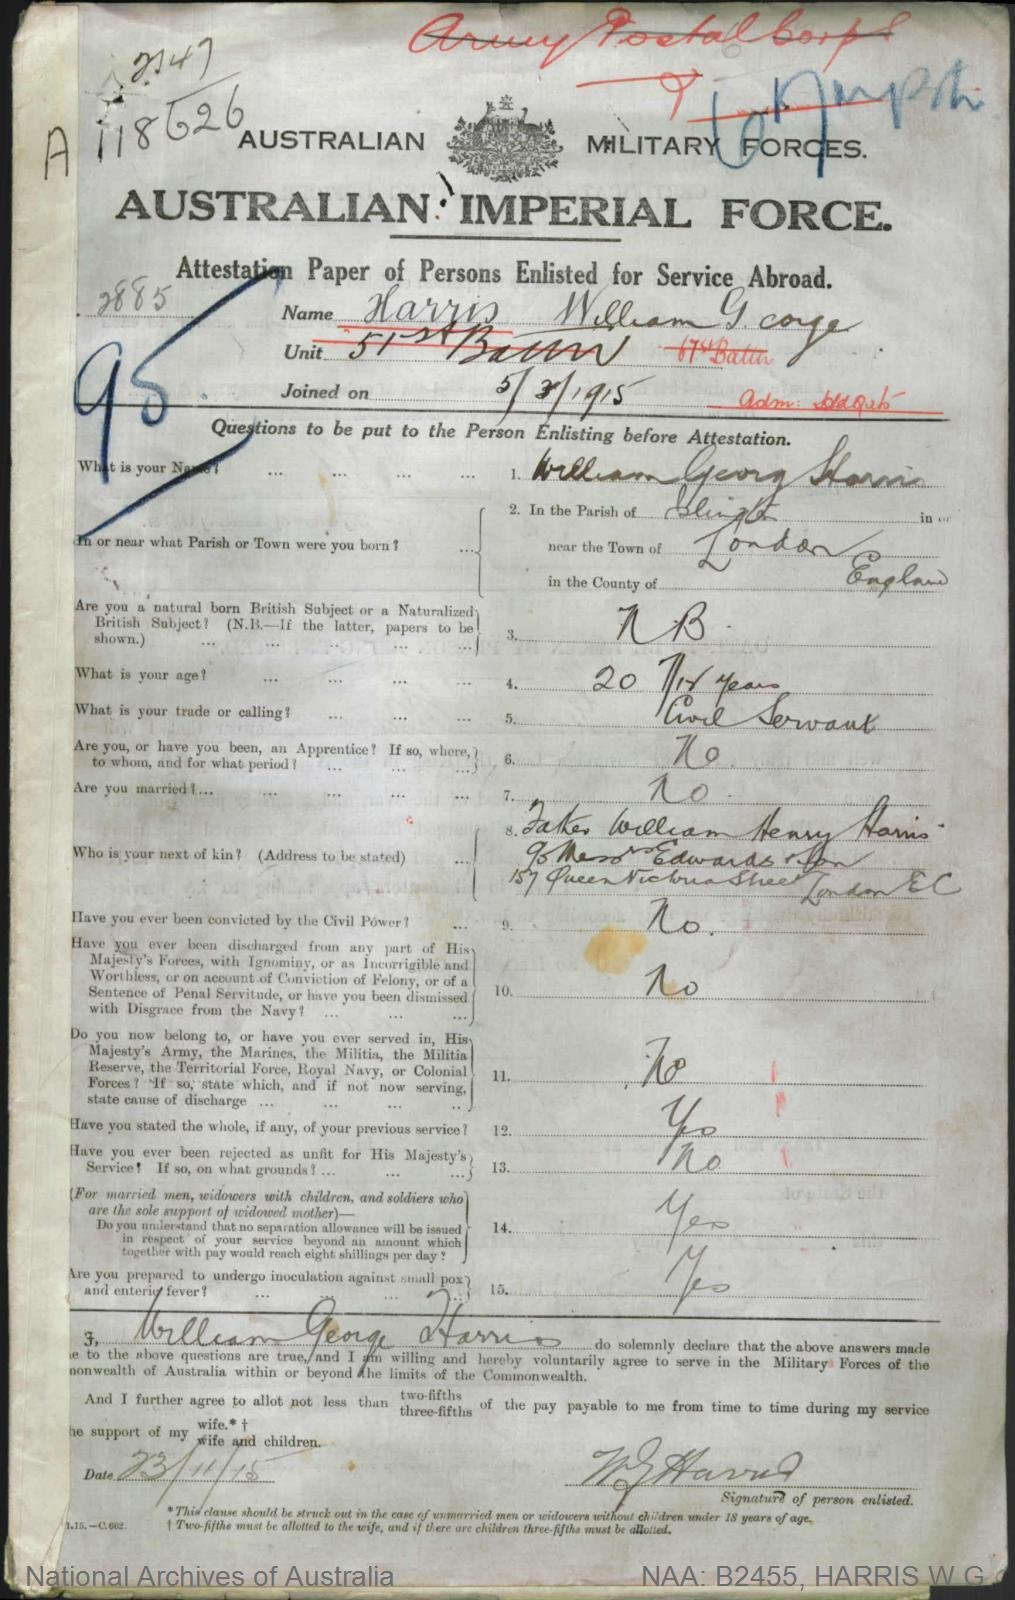 Army Postal Corps
2147
A 118626
AUSTRALIAN MILITARY FORCES.
AUSTRALIAN IMPERIAL FORCE.
Attestation Paper of Persons Enlisted for Service Abroad.
2885
95
Name Harris William George
Unit 51st Battn 67th Battn
Joined on 5/3/1915
Adm:
Questions to be put to the Person Enlisting before Attestation.
What is your Name? ... ... ... ... 1. William Georg Harris
In or near what Parish or Town were you born? ... 2. In the Parish of in or
near the Town of London
in the County of England
Are you a natural born British Subject or a Naturalized
British Subject? (N.B.—If the latter, papers to be
shown.) ... ... ... ... ... 3. N B
What is your age? ... ... ... ... 4. 20 7/12 years
What is your trade or calling? ... ... ... ... 5. Civil Servant
Are you, or have you been, an Apprentice? If so, where,
to whom, and for what period? ... ... ... 6. No.
Are you married?... ... ... ... ... 7. No.
Who is your next of kin? (Address to be stated) ... 8. Father William Henry Harris
Messrs Edwards & Son
157 Queen Victoria Street London EC
Have you ever been convicted by the Civil Power? ... 9. No.
Have you ever been discharged from any part of His
Majesty's Forces, with Ignominy, or as Incorrigible and
Worthless, or on account of Conviction of Felony, or of a
Sentence of Penal Servitude, or have you been dismissed
with Disgrace from the Navy? ... ... ... 10. No
Do you now belong to, or have you ever served in, His
Majesty's Army, the Marines, the Militia, the Militia
Reserve, the Territorial Force, Royal Navy, or Colonial
Forces? If so, state which, and if not now serving,
state cause of discharge ... ... ... .. 11. No
Have you stated the whole, if any, of your previous service? 12. Yes
Have you ever been rejected as unfit for His Majesty's
Service? If so, on what grounds?... ... ... 13. No
(For married men, widowers with children, and soldiers who
are the sole support of widowed mother)—
Do you understand that no separation allowance will be issued
in respect of your service beyond an amount which
together with pay would reach eight shillings per day? 14. Yes
Are you prepared to undergo inoculation against small pox
and enteric fever? ... ... ... ... 15. Yes
I, William George Harris do solemnly declare that the above answers made
e to the above questions are true, and I am willing and hereby voluntarily agree to serve in the Military Forces of the
nonwealth of Australia within or beyond the limits of the Commonwealth.
And I further agree to allot not less than two-fifths three-fifths of the pay payable to me from time to time during my service
he support of my wife.*† wife and children.
Date 23/11/15 WG Harris
Signature of person enlisted.
*This clause should be struck out in the case of unmarried men or widowers without children under 18 years of age.
.15.—C.662. † Two-fifths must be allotted to the wife, and if there are children three-fifths must be allotted.
National Archives of Australia NAA: B2455, HARRIS W G